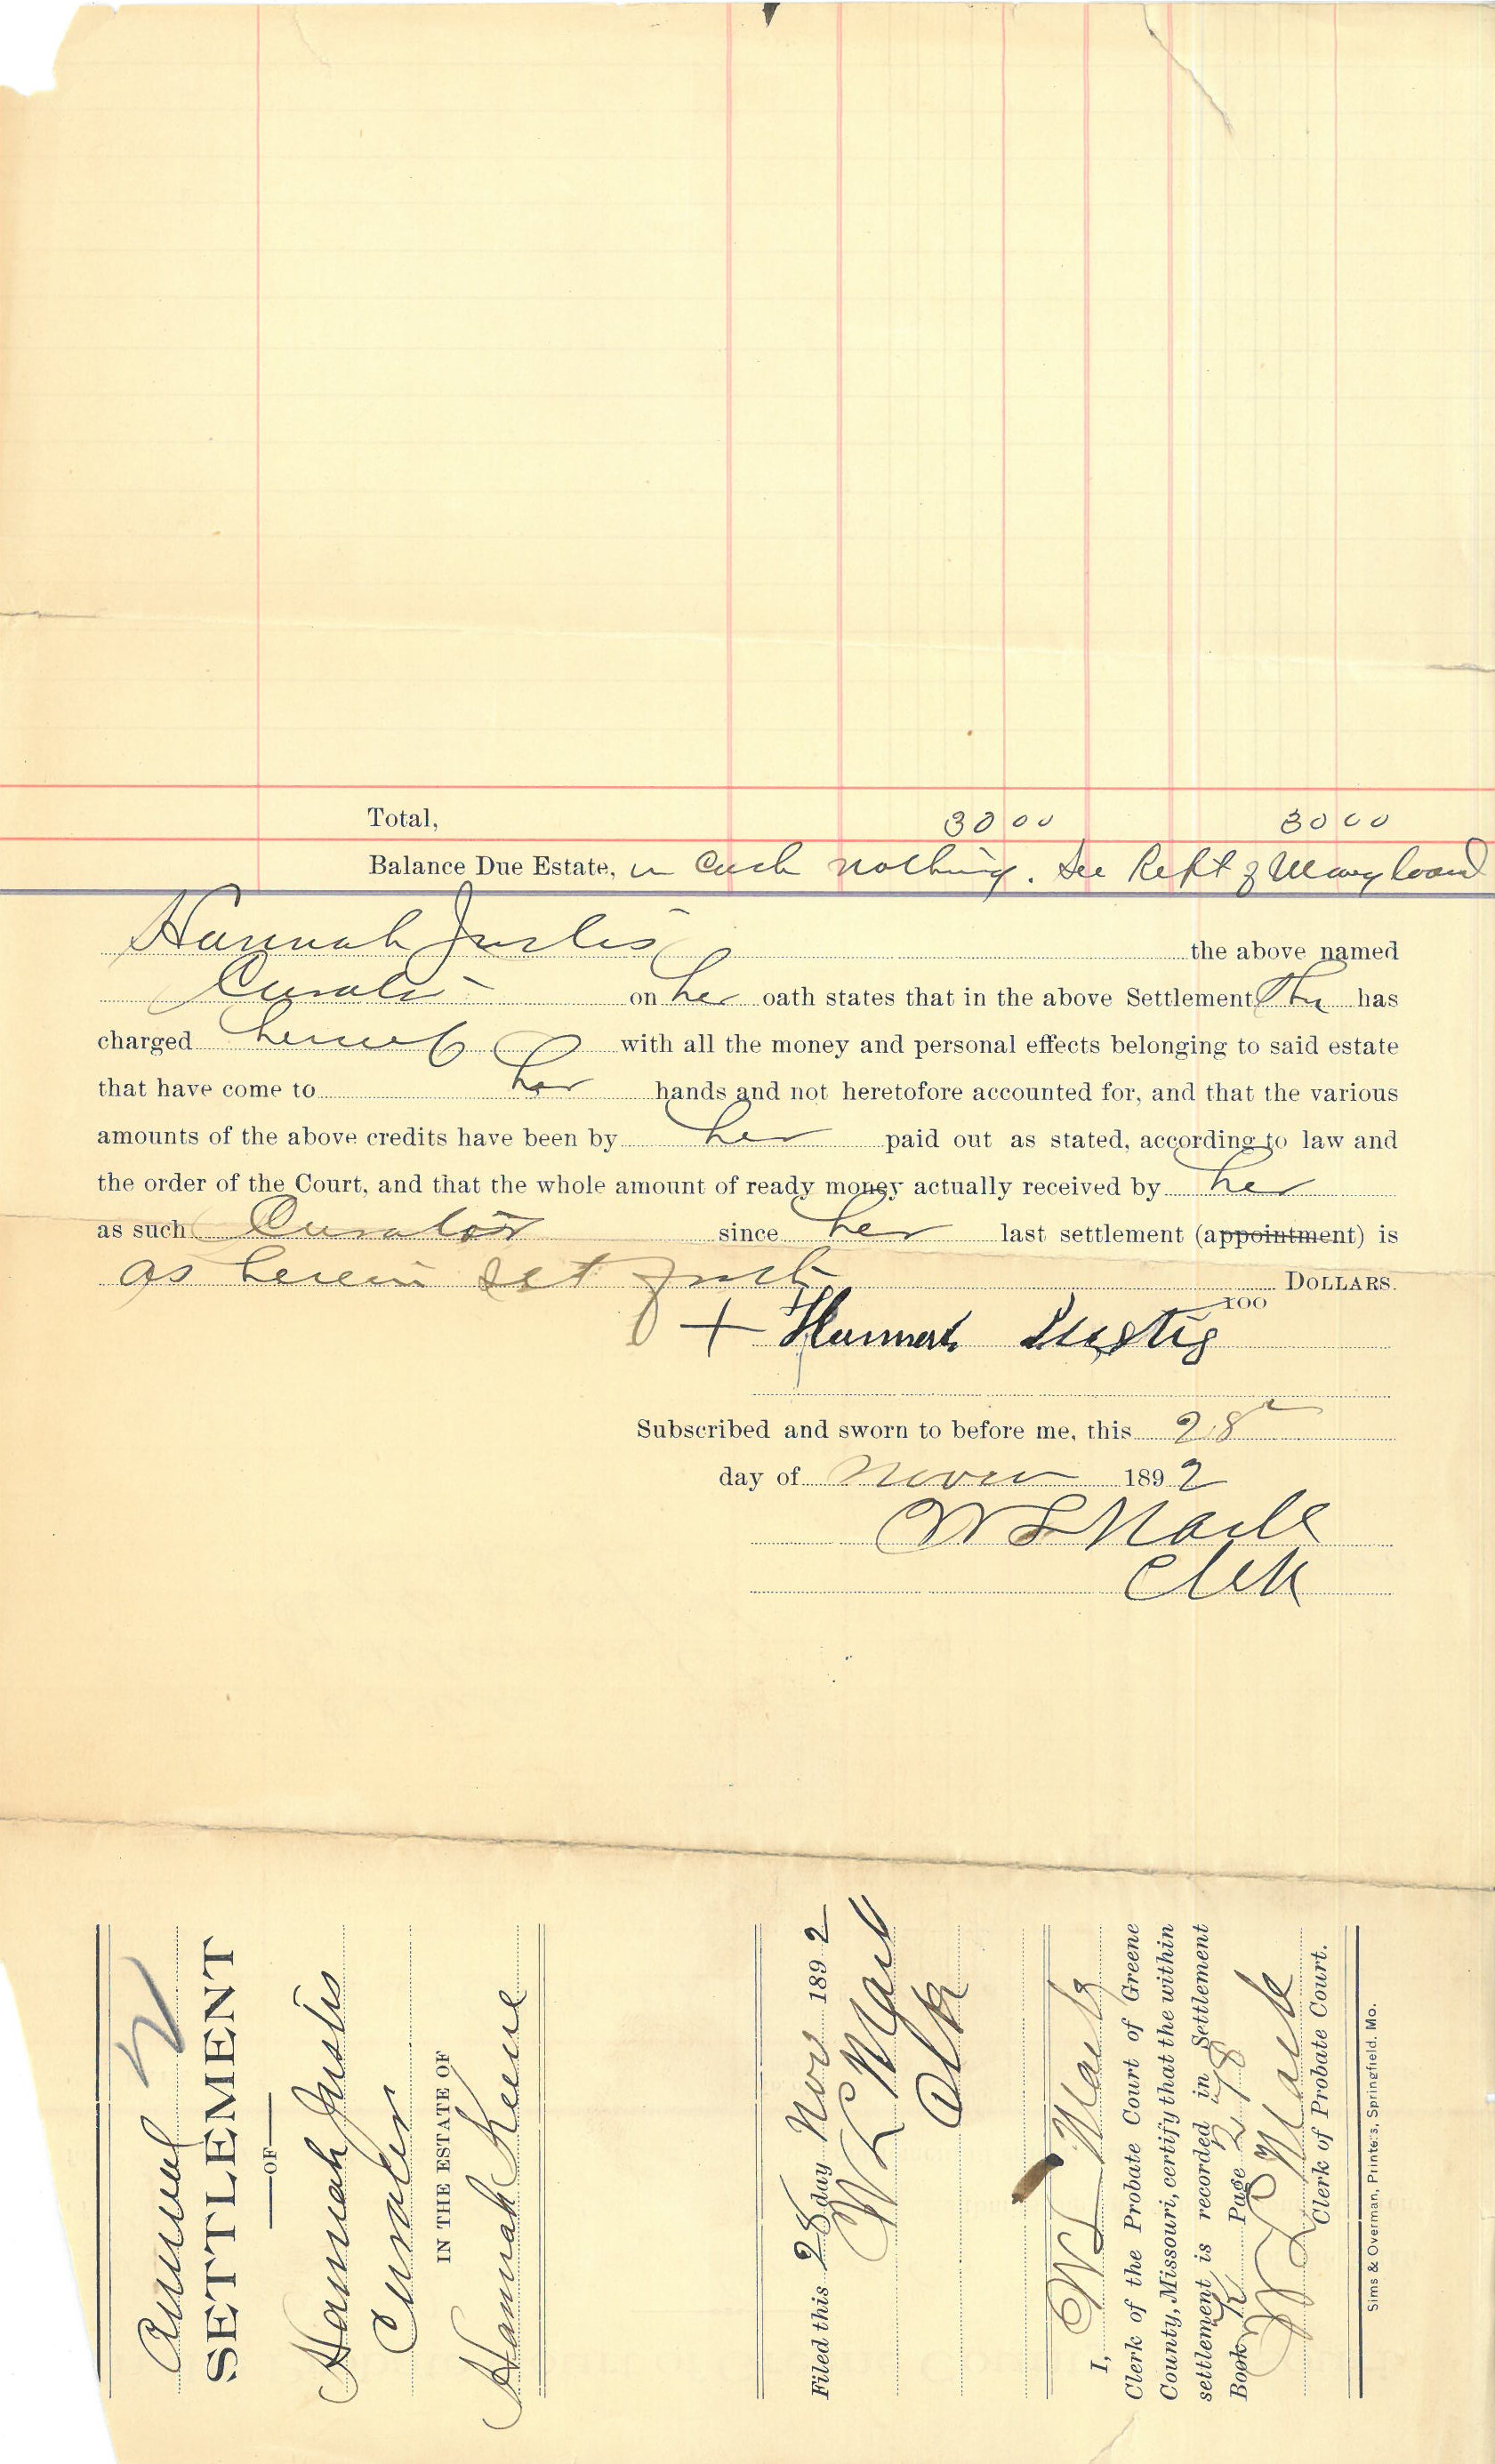 Total, 30 00 30 00
Balance Due Estate, in Cash nothing. See Rept of Loand
Hannah Justis the above named
Curator on her oath states that in the above Settlement She has
charged herself with all the money and personal effects belonging to said estate
that have come to her hands and not heretofore accounted for, and that the various
amounts of the above credits have been by her paid out as stated, according to law and
the order of the Court, and that the whole amount of ready money actually received by her
as such Curator since her last settlement (appointment) is
as herein set forth DOLLARS.
100
+ Hannah Justis
Subscribed and sworn to before me, this 28
day of Novr 1892
W L Mack
Clk
Annual 2
SETTLEMENT
—OF—
Hannah Justis
Curator
IN THE ESTATE OF
Hannah Keene
Filed this 28 day Nov 1892
W L Mack
Clk
I, W L Mack
Clerk of the Probate Court of Greene
County, Missouri, certify that the within
settlement is recorded in Settlement
Book K Page 278
W L Mack
Clerk of Probate Court.
Sims & Overman, Printers, Springfield, Mo.